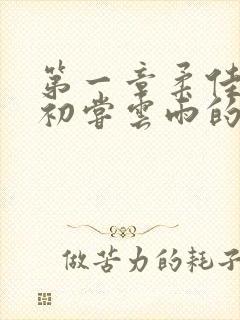 第一章柔佳
初嘗雲雨的
做苦力的耗子